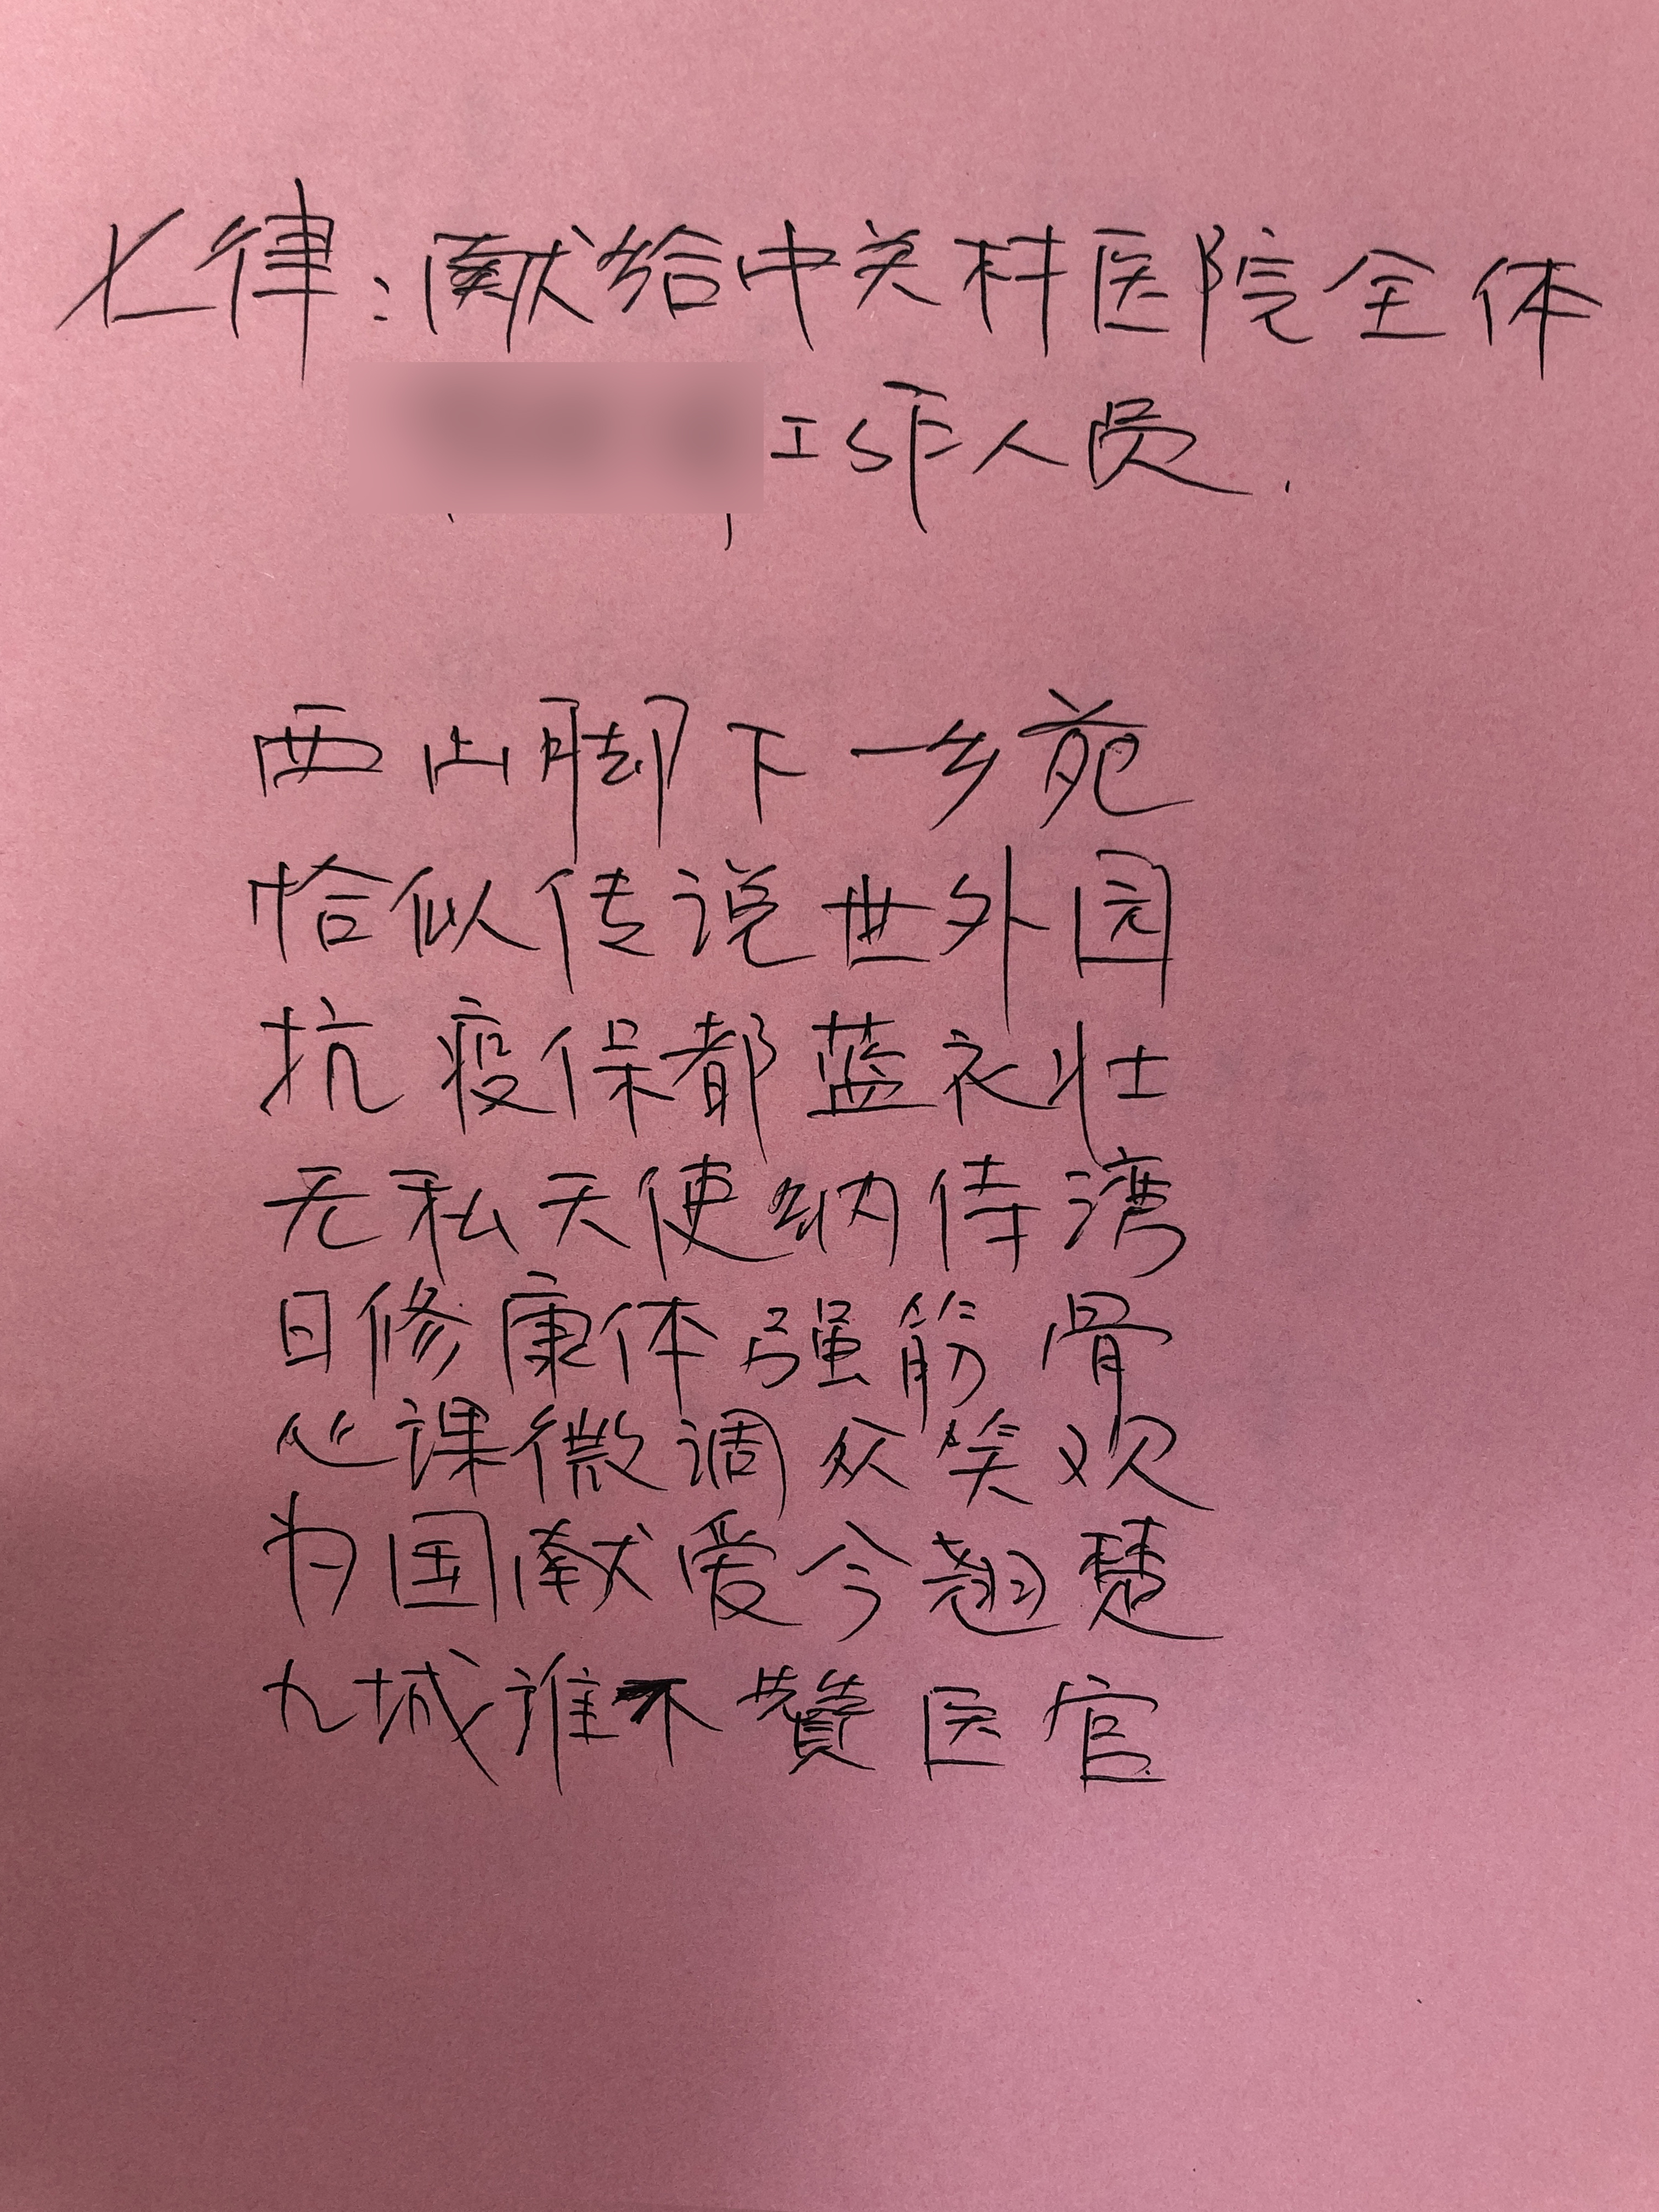 七律：献给中关村医院全体
工作人员.
西山脚下一乡苑
恰似传说世外园
抗疫保都蓝衣壮
无私天使纳侍湾
日修康体强筋骨
心课微调众笑欢
为国献爱今翘楚
九城谁不赞医官